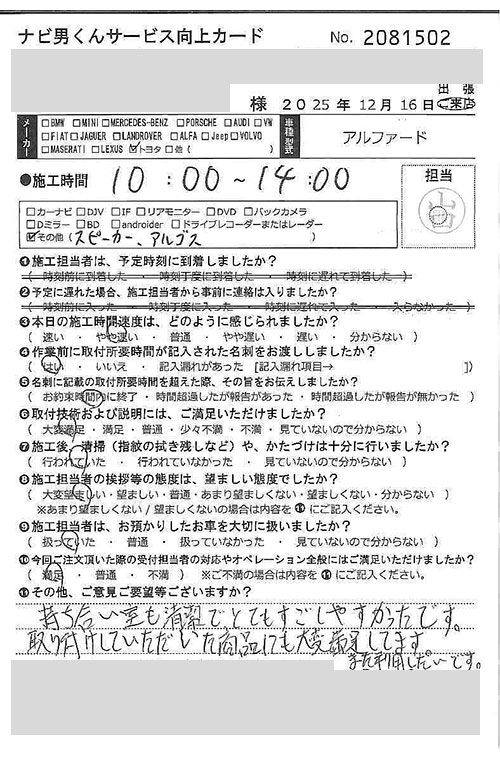 ナビ男くんサービス向上カード No. 2081502
出張
様 2025年 12月 16日 ご来店
メーカー
□BMW □MINI □MERCEDES-BENZ □PORSCHE □AUDI □VW
□FIAT □JAGUER □LANDROVER □ALFA □Jeep □VOLVO
□MASERATI □LEXUS ☑トヨタ □他 ( )
車種型式 アルファード
●施工時間 10:00~14:00
担当
□カーナビ □DJV □IF □リアモニター □DVD □バックカメラ
□Dミラー □BD □androider □ドライブレコーダーまたはレーダー
☑その他 (スピーカー、アルゴス )
❶施工担当者は、予定時刻に到着しましたか?
( 時刻前に到着した ・ 時刻丁度に到着した ・ 時刻に遅れて到着した )
❷予定に遅れた場合、施工担当者から事前に連絡は入りましたか?
( 時刻前に入った ・ 時刻丁度に入った ・ 時刻に遅れて入った ・ 入らなかった )
❸本日の施工時間速度は、どのように感じられましたか?
( 速い ・ やや速い ・ 普通 ・ やや遅い ・ 遅い ・ 分からない )
❹作業前に取付所要時間が記入された名刺をお渡ししましたか?
( はい ・ いいえ ・ 記入漏れがあった [記入漏れ項目→ ])
❺名刺に記載の取付所要時間を超えた際、その旨をお伝えしましたか?
( お約束時間内に終了 ・ 時間超過したが報告があった ・ 時間超過したが報告が無かった )
❻取付技術および説明には、ご満足いただけましたか?
( 大変満足 ・ 満足 ・ 普通 ・ 少々不満 ・ 不満 ・ 見ていないので分からない )
❼施工後、清掃(指紋の拭き残しなど)や、かたづけは十分に行いましたか?
( 行われていた ・ 行われていなかった ・ 見ていないので分からない )
❽施工担当者の挨拶等の態度は、望ましい態度でしたか?
( 大変望ましい・望ましい・普通・あまり望ましくない・望ましくない・分からない )
※あまり望ましくない / 望ましくないの場合は内容を⓫にご記入ください。
❾施工担当者は、お預かりしたお車を大切に扱いましたか?
( 扱っていた ・ 普通 ・ 扱っていなかった ・ 見ていないので分からない )
❿今回ご注文頂いた際の受付担当者の対応やオペレーション全般にはご満足いただけましたか?
( 満足 ・ 普通 ・ 不満 ) ※ご不満の場合は内容を⓫にご記入ください。
⓫その他、ご意見ご要望等ございますか?
持ち合い室も清潔でとてもすごしやすかったです。
取り付けしていただいた商品にも大変満足してます。
また利用したいです。